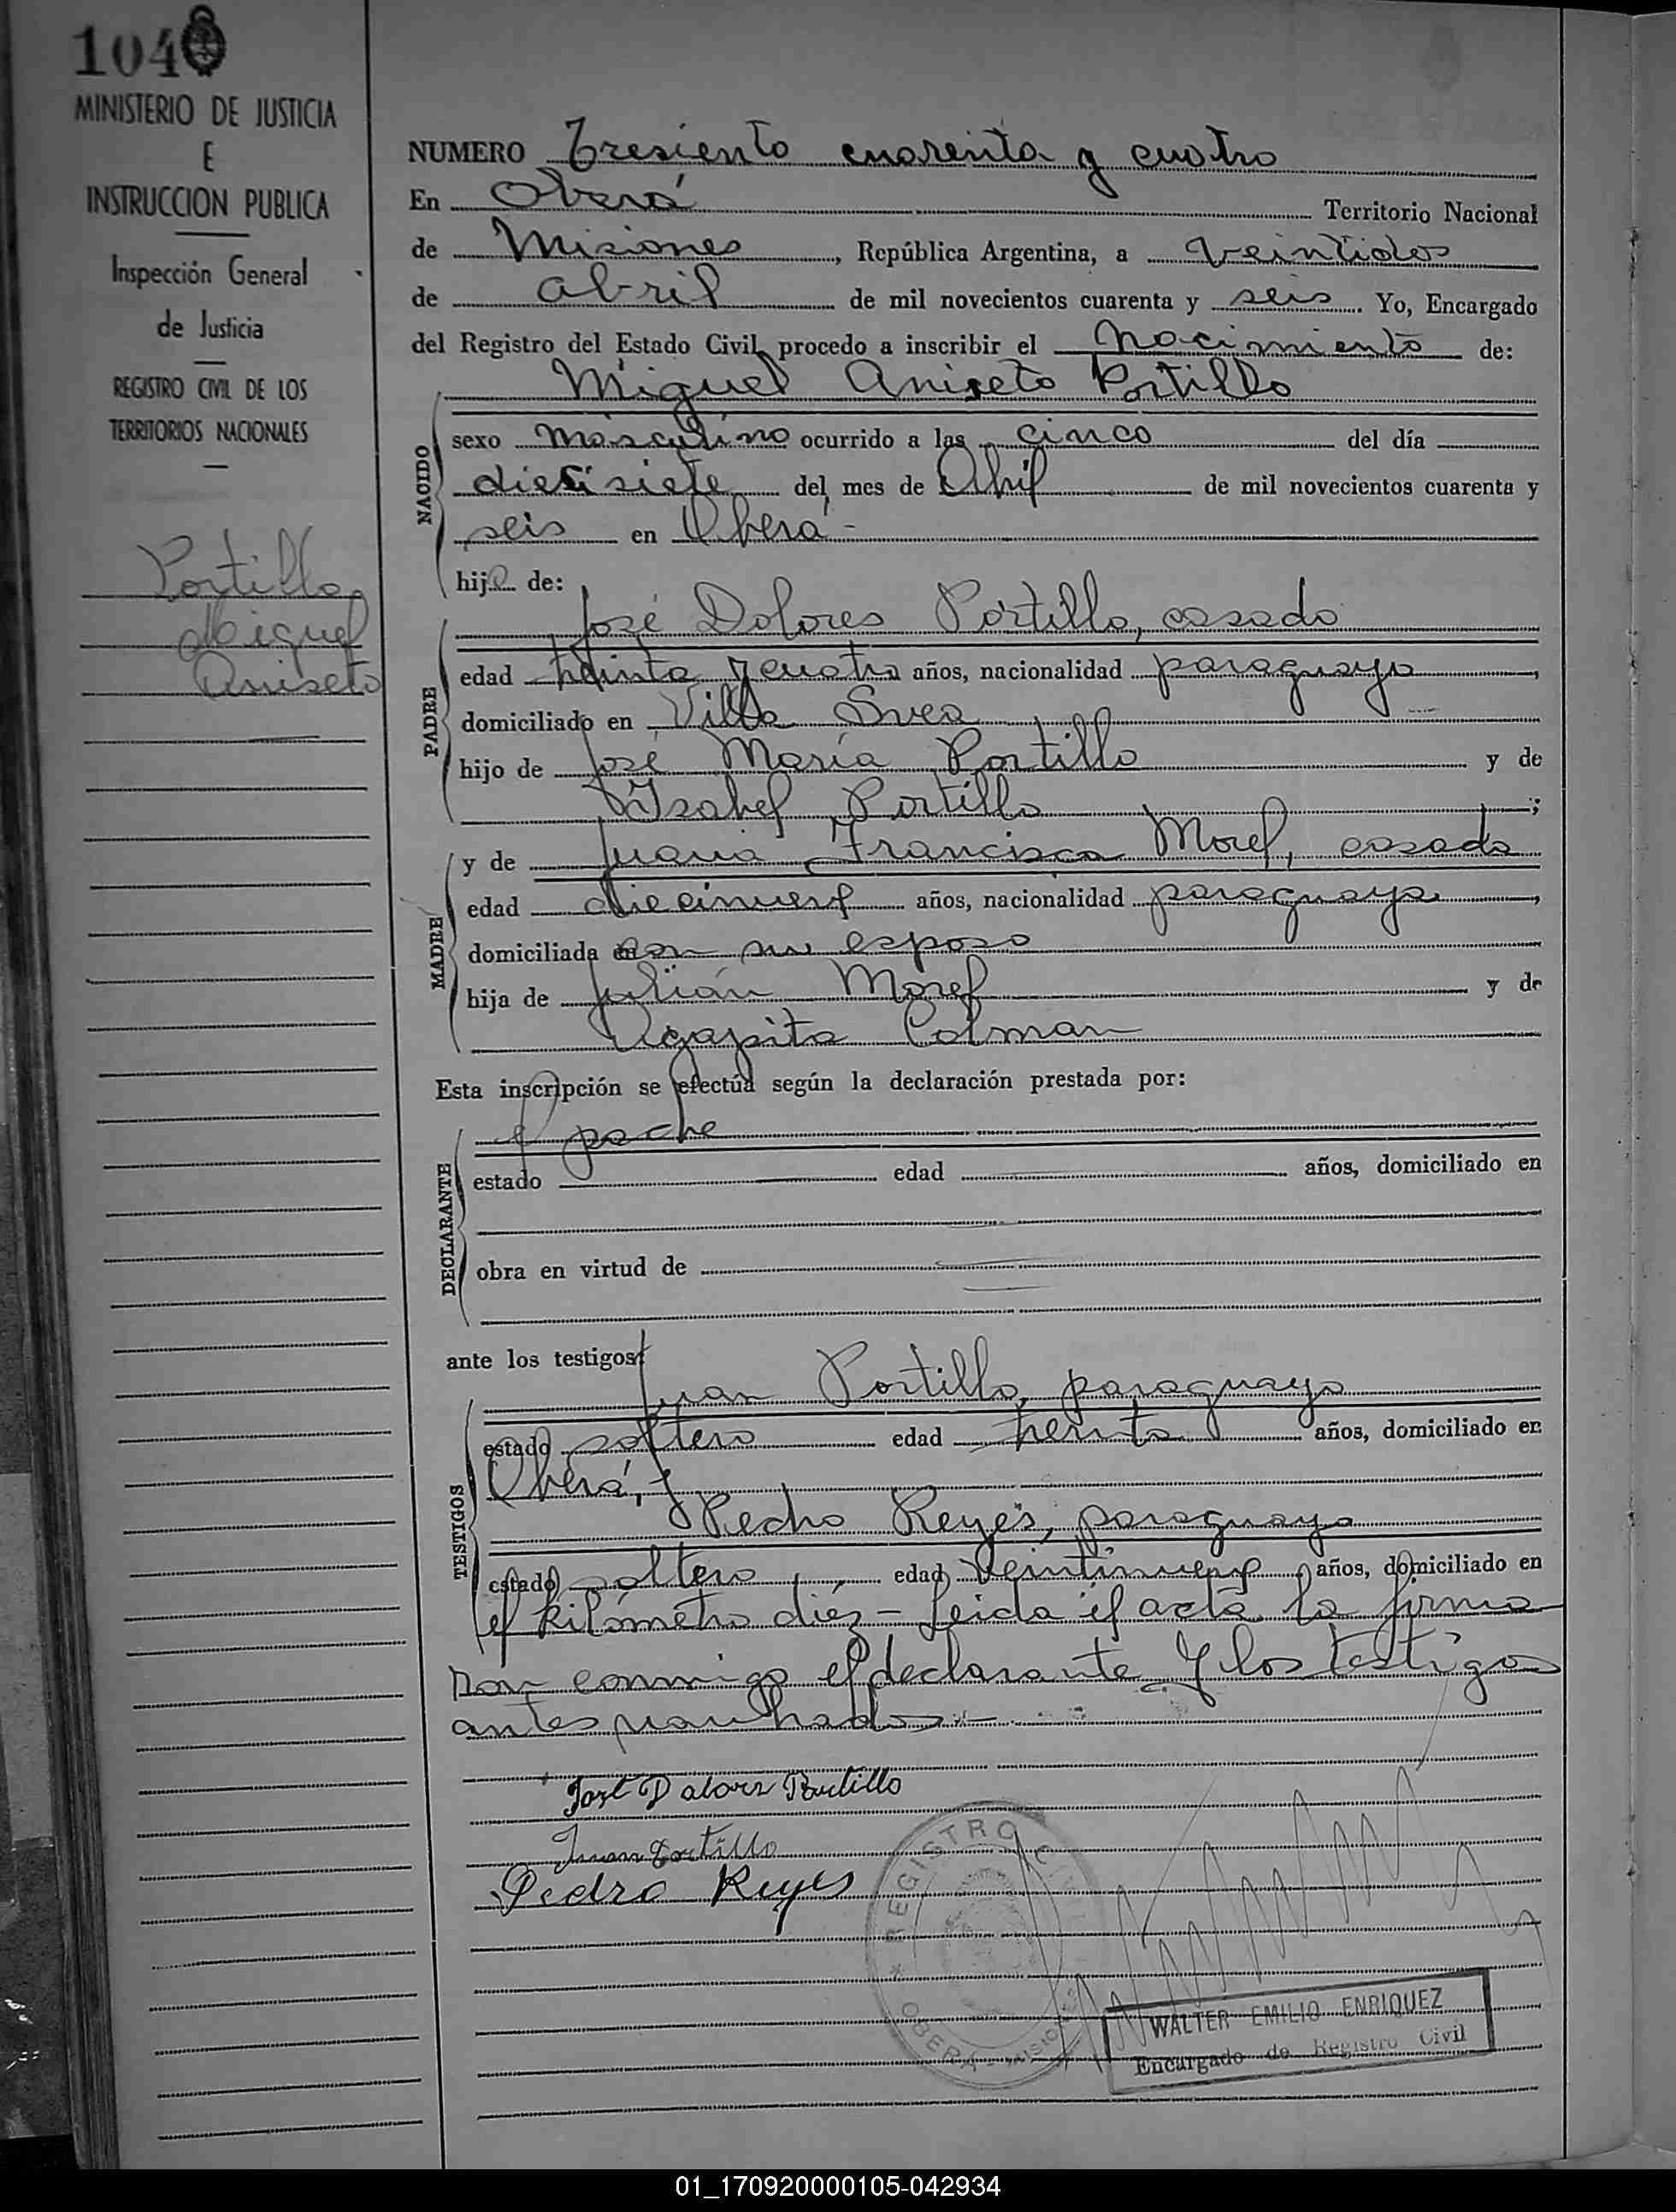 104
MINISTERIO DE JUSTICIA
E
INSTRUCCION PUBLICA
Inspección General
de Justicia
REGISTRO CIVIL DE LOS
TERRITORIOS NACIONALES
Portillo
Miguel
Aniseto
NUMERO Tresiento cuarenta y cuatro
En Oberá Territorio Nacional
de Misiones, República Argentina, a veintidos
de abril de mil novecientos cuarenta y seis. Yo, Encargado
del Registro del Estado Civil, procedo a inscribir el nacimiento de:
Miguel Aniseto Portillo
NACIDO
sexo masculino ocurrido a las cinco del día
diecisiete del mes de Abril de mil novecientos cuarenta y
seis en Oberá -
hijo de:
José Dolores Portillo, casado
PADRE
edad treinta y cuatro años, nacionalidad paraguayo,
domiciliado en Villa Svea
hijo de José María Portillo y de
Isabel Portillo;
y de Juana Francisca Morel, casada
MADRE
edad diecinueve años, nacionalidad paraguaya,
domiciliada con su esposo
hija de Julián Morel y de
Agapita Colman
Esta inscripción se efectúa según la declaración prestada por:
el padre
DECLARANTE
estado edad años, domiciliado en
obra en virtud de
ante los testigos
Juan Portillo, paraguayo
TESTIGOS
estado soltero edad treinta años, domiciliado en
Oberá, y
Pedro Reyes, paraguayo
estado soltero, edad veintinueve años, domiciliado en
el kilómetro diez - Leida el acta la firma
ron conmigo el declarante y los testigos
antes nombrados.-
José Dolores Portillo
Juan Portillo
Pedro Reyes
REGISTRO CIVIL
OBERA - MISIONES
WALTER EMILIO ENRIQUEZ
Encargado de Registro Civil
01_170920000105-042934